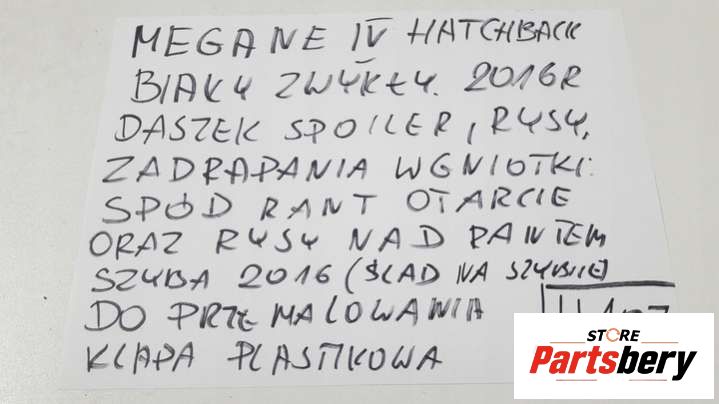 MEGANE IV HATCHBACK
BIAŁY ZWYKŁY. 2016R
DASZEK SPOILER, RYSY,
ZADRAPANIA WGNIOTKI:
SPÓD RANT OTARCIE
ORAZ RYSY NAD RANTEM
SZYBA 2016 (ŚLAD NA SZYBIE)
DO PRZEMALOWANIA
KLAPA PLASTIKOWA
STORE
Partsbery